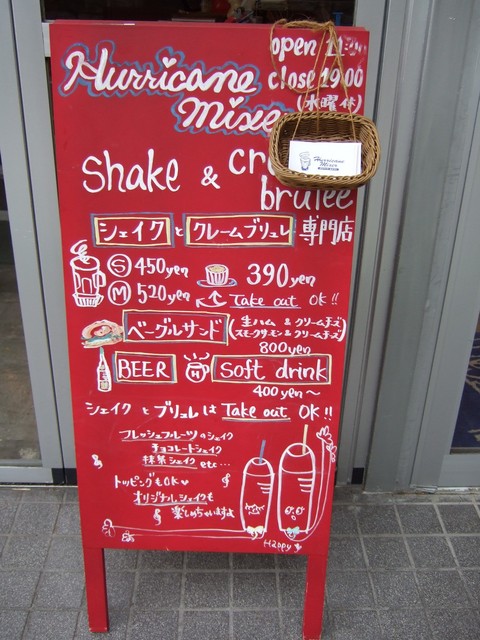 open 11:00
close 19:00
(水曜休)
Hurricane
Mixer
Hurricane
Mixer
Shake & cr
brulee
シェイク と クレームブリュレ 専門店
S 450yen 390yen
M 520yen Take out OK!!
ベーグルサンド (生ハム & クリームチーズ
スモークサーモン & クリームチーズ)
800yen
BEER soft drink
400yen～
シェイク と ブリュレは Take out OK!!
フレッシュフルーツのシェイク
チョコレートシェイク
抹茶シェイク etc…
トッピングもOK♥
オリジナルシェイクも
楽しめちゃいますよ
Happy